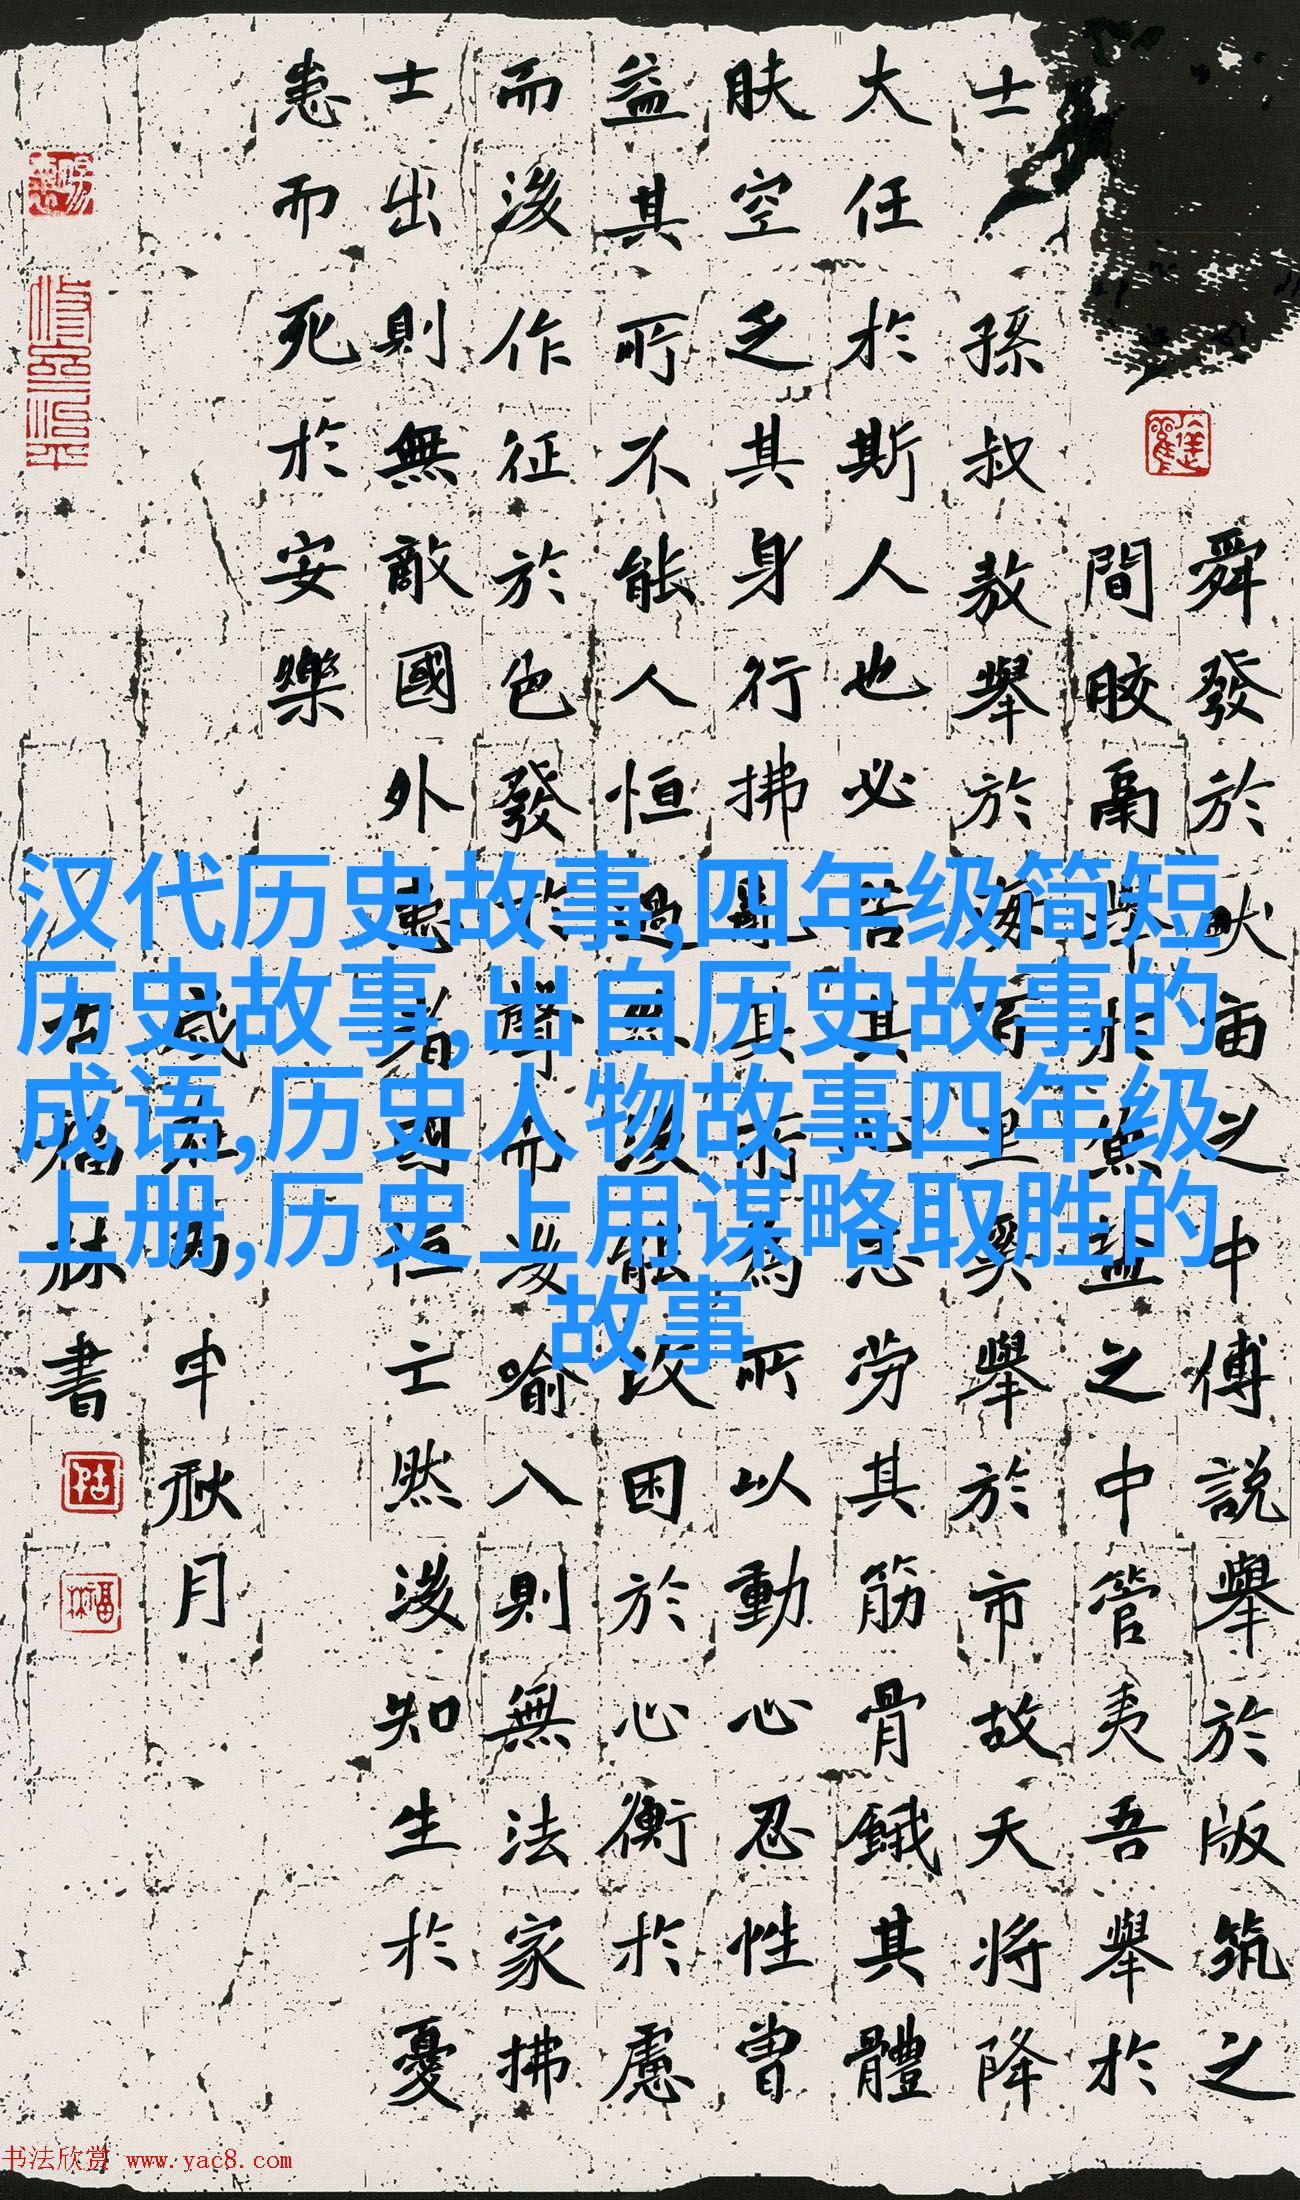 舜發於畎亩之中傅説舉於版筑之
間胶鬲舉於魚盐之中管夷吾舉於
士孫叔敖舉於海百里奚舉於市故天將降
大任於斯人也必苦其心志劳其筋骨餓其體
肤空乏其身行拂亂其所為所以動心忍性曾
益其所不能人恒過然後能改困於心衡於慮
而後作征於色發於聲而後喻入則無法家拂
士出則無敵國外患者國恒亡然後知生於憂
患而死於安樂
歲在丙申秋月
古福林書
汉代历史故事,四年级简短
历史故事,出自历史故事的
成语,历史人物故事四年级
上册,历史上用谋略取胜的
故事
书法欣赏 www.yac8.com